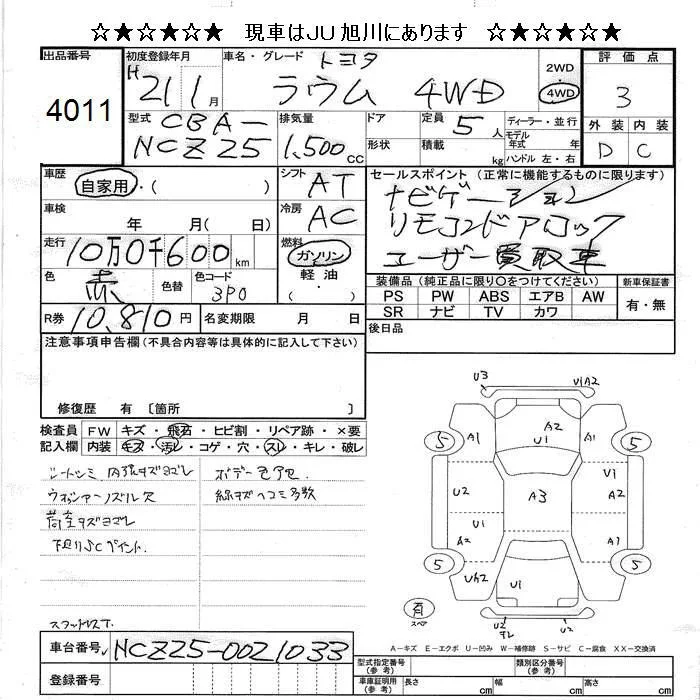 ☆★☆★☆★ 現車はJU旭川にあります ☆★☆★☆★
出品番号 初度登録年月 車名・グレード 評価点
4011
H 21 1月
トヨタ
ラウム 4WD
2WD
4WD
3
型式 CBA-
NCZ25
排気量 1,500cc
ドア
形状
定員 5人
積載 kg
ディーラー・並行
モデル年式 年式
ハンドル 左・右
外装 内装
D C
車歴 自家用・( )
シフト AT
セールスポイント (正常に機能するものに限ります)
ナビゲーション
リモコンドアロック
ユーザー買取車
車検 年 月( 日)
冷房 AC
走行 10万0千600km
燃料 ガソリン
軽油
・( )
色 赤 色替 色コード 3P0
装備品(純正品に限り○をつけてください) 新車保証書
PS PW ABS エアB AW
SR ナビ TV カワ
有・無
R券 10,810円 名変期限 月 日
後日品
注意事項申告欄(不具合内容等は具体的に記入して下さい)
修復歴 有〔箇所 〕
検査員 FW キズ・飛石・ヒビ割・リペア跡・×要
記入欄 内装 キズ・汚レ・コゲ・穴・スレ・キレ・破レ
シートシミ 内張キズヨゴレ
ウォッシャーノズル欠
荷室キズヨゴレ
下廻りSCペイント.
ボデー色アセ
線キズヘコミ多数
U3 U1A2
5 A1 A2 U1 A1 5
U2 A3 U1 A2
U1 A2 U2 A1
5 U1 5
有
スペア
U2 U2
A-キズ E-エクボ U-凹み W-補修跡 S-サビ C-腐食 XX-交換済
車台番号 NCZ25-0021033
登録番号
型式指定番号(参考) 類別区分番号(参考)
車庫証明用(参考) 長さ cm 幅 cm 高さ cm